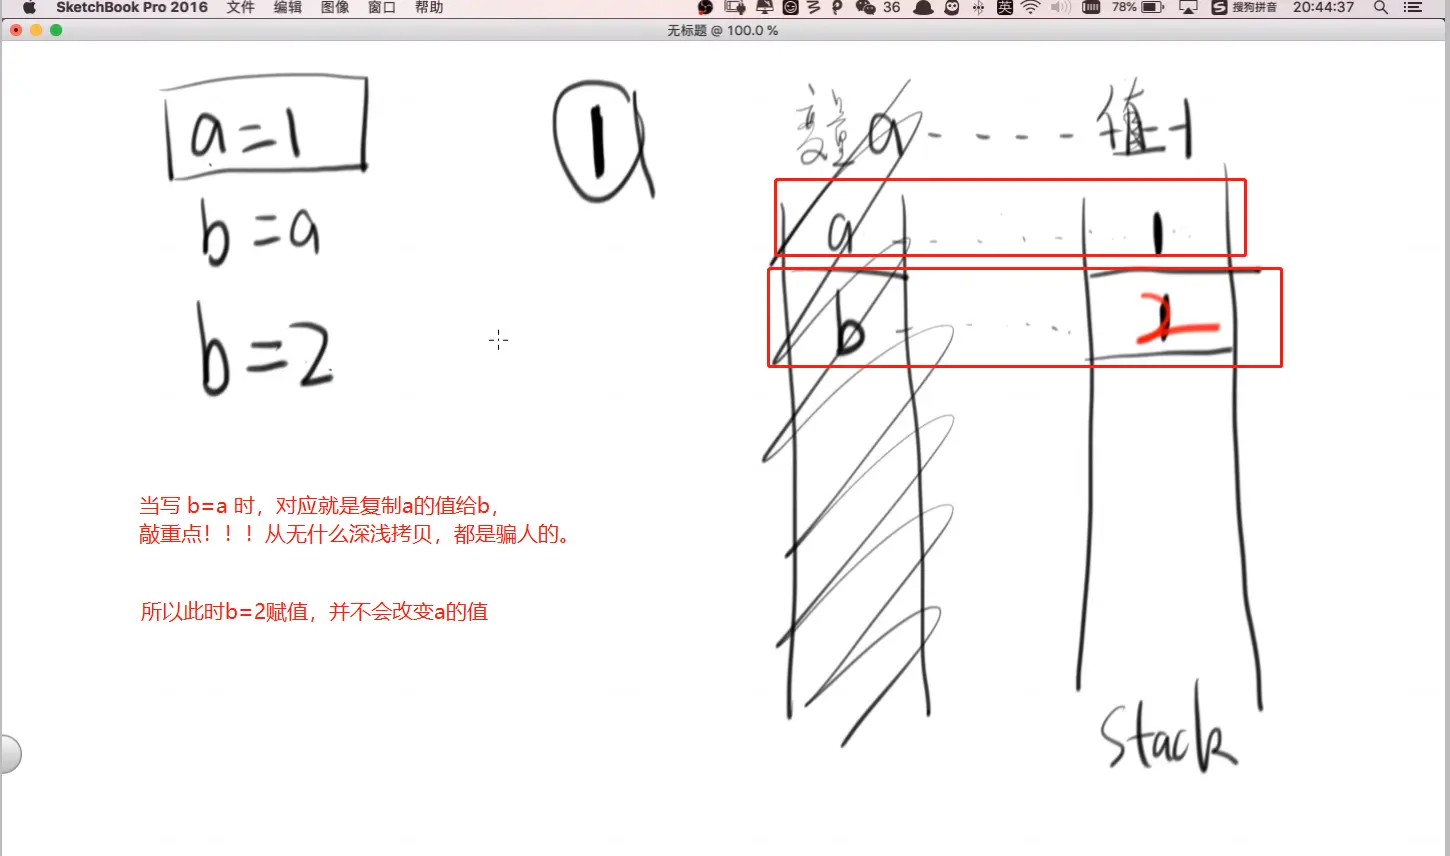 SketchBook Pro 2016 文件 编辑 图像 窗口 帮助 36 英 78% 搜狗拼音 20:44:37
无标题 @ 100.0 %
a=1
b=a
b=2
1
变量 a 值 1
a 1
b 2
当写 b=a 时，对应就是复制a的值给b，
敲重点！！！从无什么深浅拷贝，都是骗人的。
所以此时b=2赋值，并不会改变a的值
Stack